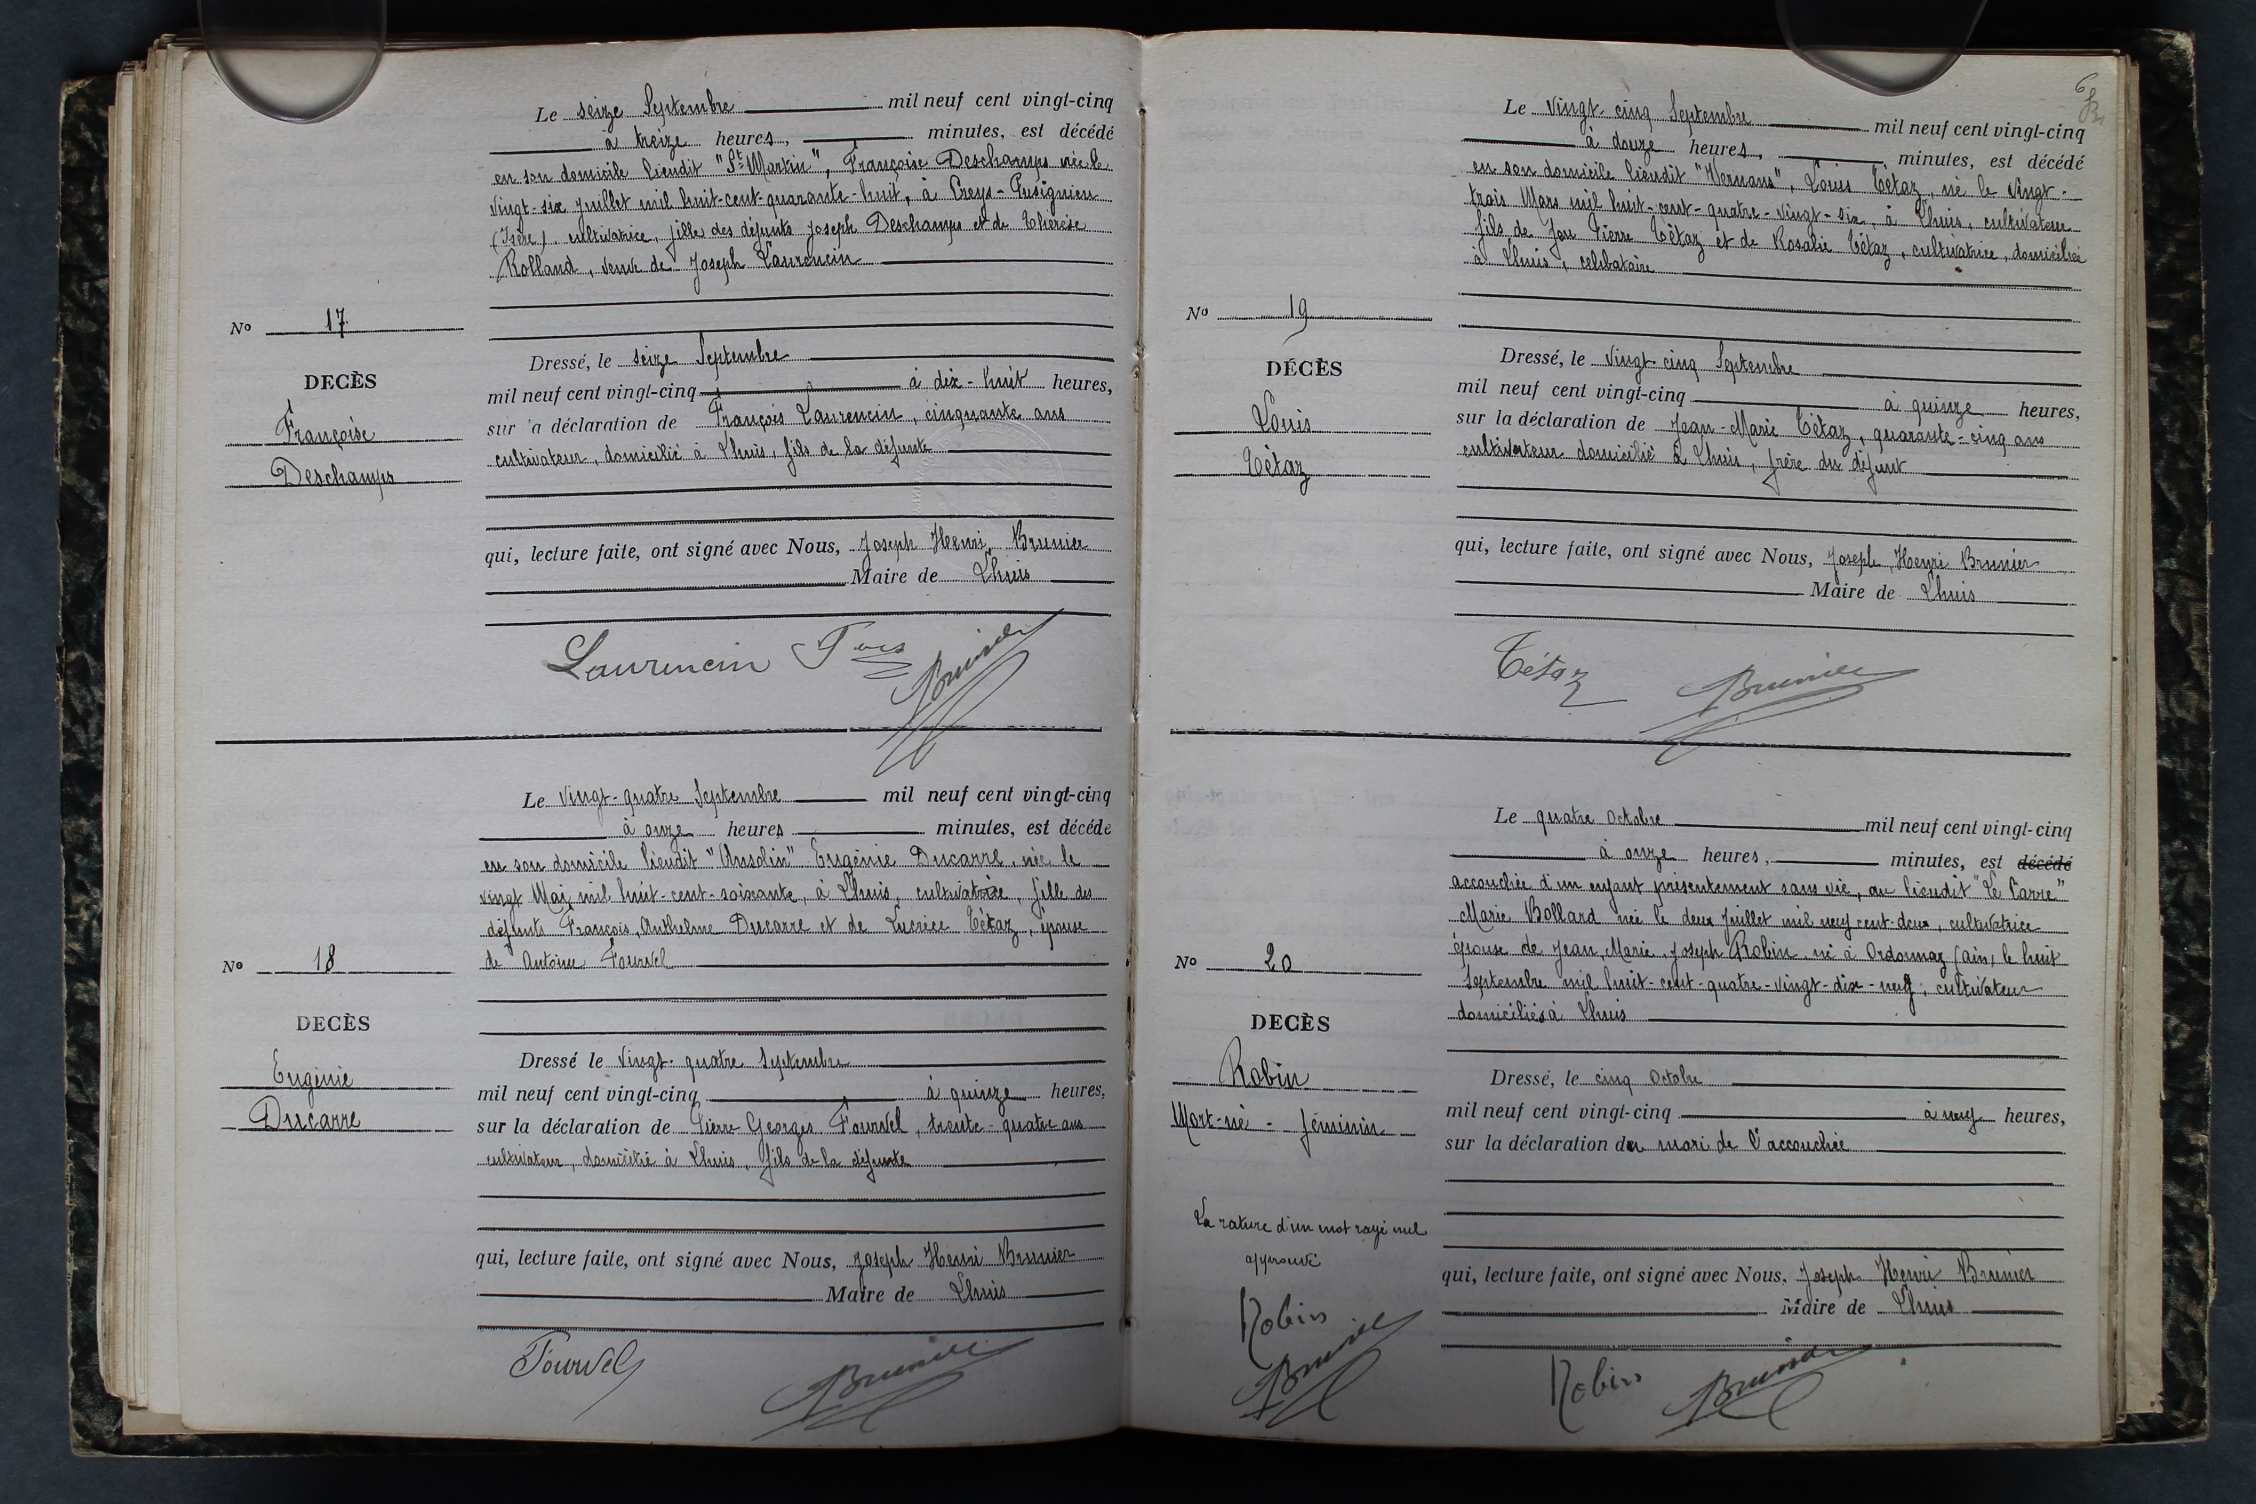 Le seize Septembre mil neuf cent vingt-cinq
à treize heures, minutes, est décédé
en son domicile lieudit "St Martin", Françoise Deschamps née le
vingt-six juillet mil huit-cent-quarante-huit, à Creys-Pusignieu
(Isère), cultivatrice, fille des défunts Joseph Deschamps et de Thérèse
Rolland, veuve de Joseph Laurencin
No 17
DECÈS
Françoise
Deschamps
Dressé, le seize Septembre
mil neuf cent vingt-cinq à dix-huit heures,
sur 'a déclaration de François Laurencin, cinquante ans
cultivateur, domicilié à Lhuis, fils de la défunte
qui, lecture faite, ont signé avec Nous, Joseph Henri Brunier
Maire de Lhuis
Laurencin Fois Brunier
Le vingt-quatre Septembre mil neuf cent vingt-cinq
à onze heures minutes, est décédé
en son domicile lieudit "Ansolin" Eugénie Ducarre, née le
vingt Mai mil huit-cent-soixante, à Lhuis, cultivatrice, fille des
défunts François, Anthelme Ducarre et de Lucrèce Tétaz, épouse
de Antoine Fournel
No 18
DECÈS
Eugénie
Ducarre
Dressé le vingt-quatre Septembre
mil neuf cent vingt-cinq à quinze heures,
sur la déclaration de Pierre Georges Fournel, trente-quatre ans
cultivateur, domicilié à Lhuis, fils de la défunte
qui, lecture faite, ont signé avec Nous, Joseph Henri Brunier
Maire de Lhuis
Fournel Brunier
Le vingt-cinq Septembre mil neuf cent vingt-cinq
à douze heures, minutes, est décédé
en son domicile lieudit "Vernans", Louis Tétaz, né le vingt-
trois Mars mil huit-cent-quatre-vingt-six, à Lhuis, cultivateur
fils de feu Pierre Tétaz et de Rosalie Tétaz, cultivatrice, domiciliée
à Lhuis, célibataire
No 19
DÉCÈS
Louis
Tétaz
Dressé, le vingt cinq Septembre
mil neuf cent vingt-cinq à quinze heures,
sur la déclaration de Jean-Marie Tétaz, quarante-cinq ans
cultivateur domicilié à Lhuis, frère du défunt
qui, lecture faite, ont signé avec Nous, Joseph Henri Brunier
Maire de Lhuis
Tétaz Brunier
Le quatre Octobre mil neuf cent vingt-cinq
à onze heures, minutes, est décédé
accouchée d'un enfant présentement sans vie, au lieudit "Le Carre"
Marie Bollard née le deux juillet mil neuf cent-deux, cultivatrice
épouse de Jean, Marie, Joseph Robin né à Ordonnaz (Ain) le huit
Septembre mil huit-cent-quatre-vingt-dix-neuf, cultivateur
domiciliés à Lhuis
No 20
DECÈS
Robin
Mort-né - féminin
Dressé, le cinq Octobre
mil neuf cent vingt-cinq à neuf heures,
sur la déclaration du mari de l'accouchée
La rature d'un mot rayé nul
approuvé
Robin
Brunier
qui, lecture faite, ont signé avec Nous, Joseph Henri Brunier
Maire de Lhuis
Robin Brunier